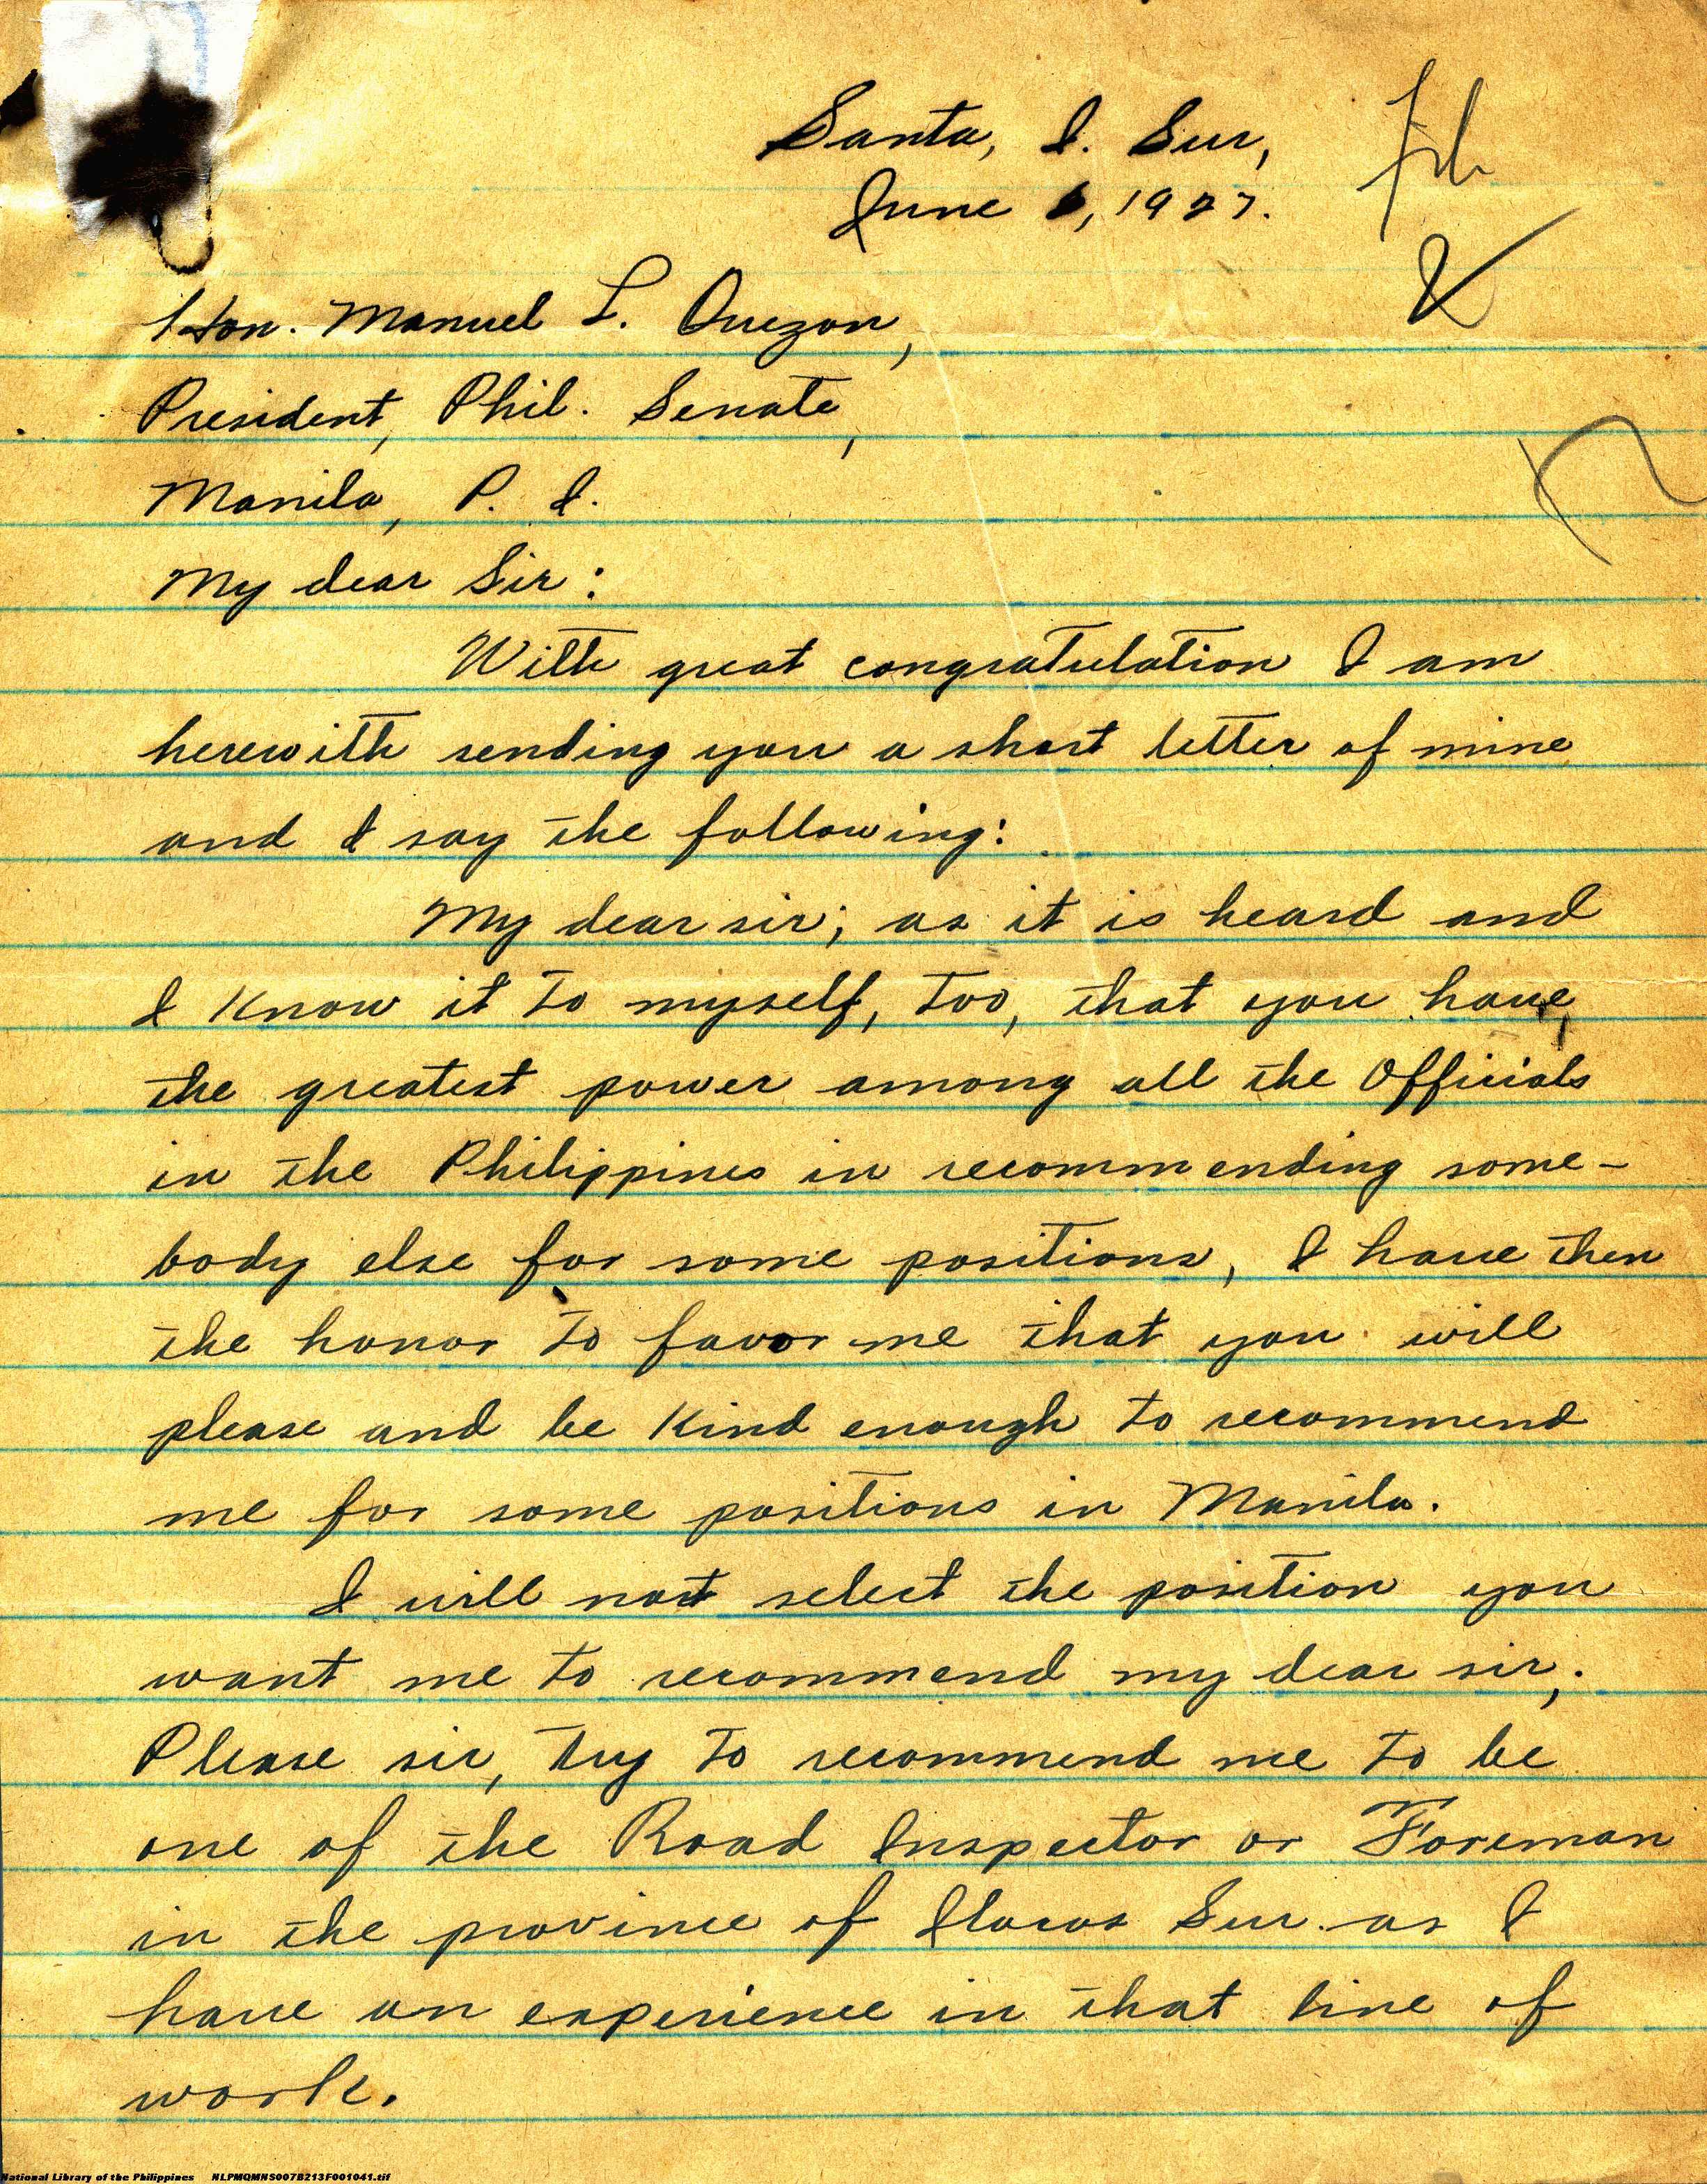 Santa, I. Sur,
June 6, 1927.
Hon. Manuel L. Quezon,
President, Phil. Senate,
Manila, P. I.
My dear Sir:
With great congratulation I am
herewith sending you a short letter of mine
and I say the following:
My dear sir; as it is heard and
I know it to myself, too, that you have,
the greatest power among all the Officials
in the Philippines in recommending some-
body else for some positions, I have then
the honor to favor me that you will
please and be kind enough to recommend
me for some positions in Manila.
I will not select the position you
want me to recommend my dear sir;
Please sir, try to recommend me to be
one of the Road Inspector or Foreman
in the province of Ilocos Sur as I
have an experience in that line of
work.
National Library of the Philippines NLPMQMNS007B213F001041.tif